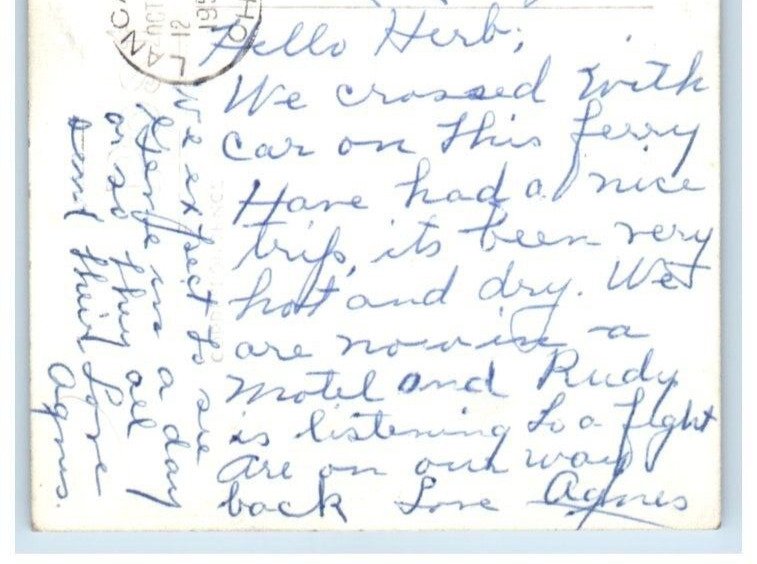 Hello Herb;
We crossed with
car on this ferry
Have had a nice
trip, its been very
hot and dry. We
are now in a
Motel and Rudy
is listening to a fight
are on our way
back Love Agnes
We expect to see
in a day
or so they all
send their Love
Agnes.
OCT
12
195